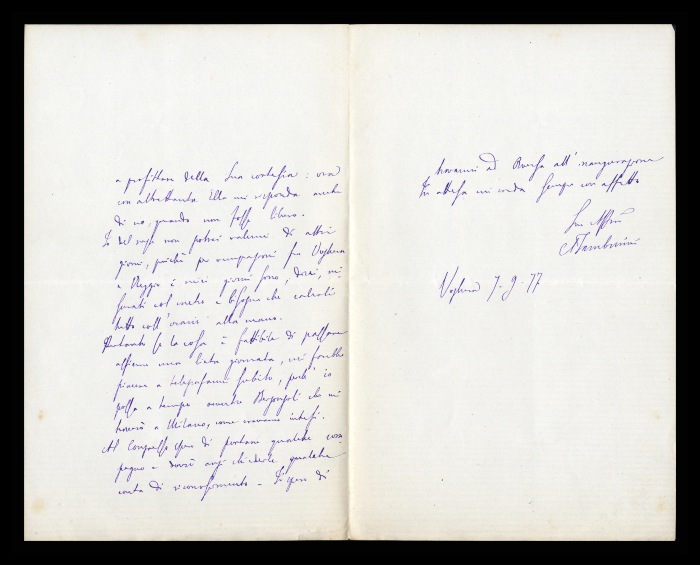 a profittare della Sua cortesia: ora
con altrettanta Ella mi risponda anche
di no, quando non fosse libero.
Io del resto non potrei valermi di altri
giorni, poichè per occupazioni fra Voghera
e Reggio i miei giorni sono, direi, mi-
surati col metro e bisogna che calcoli
tutto coll'orario alla mano.
Pertanto se la cosa è fattibile di passare
assieme una lieta giornata, mi farebbe
piacere a telegrafarmi subito, perch'io
possa a tempo avvertire che mi
troverò a Milano, come eravamo intesi.
Al Congresso spero di portare qualche com-
pagno e dovrò anzi chiederle qualche
carta di riconoscimento - Io spero di
trovarmi ad Aversa all'inaugurazione
In attesa mi creda sempre con affetto
Suo Aff.mo
ATamburini
Voghera 7-9-77